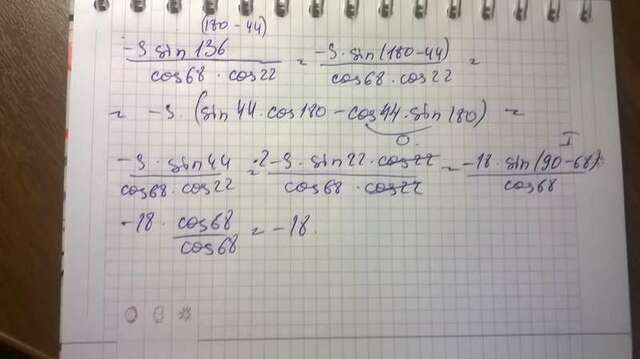 (180-44)
-9 sin 136 / cos68 · cos22 = -9 · sin(180-44) / cos68 · cos22 =
= -9 · (sin 44 · cos 180 - cos 44 · sin 180) =
0
-9 · sin 44 / cos68 · cos22 = 2·-9 · sin 22 · cos 22 / cos68 · cos22 = -18 · sin(90-68) / cos68
I
-18 · cos68 / cos68 = -18.